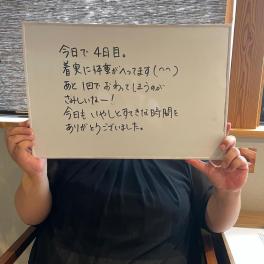 今日で4日目。
着実に体重がへってます(^^)
あと1回でおわってしまうのが
さみしいなー!
今日もいやしとすてきな時間を
ありがとうございました。